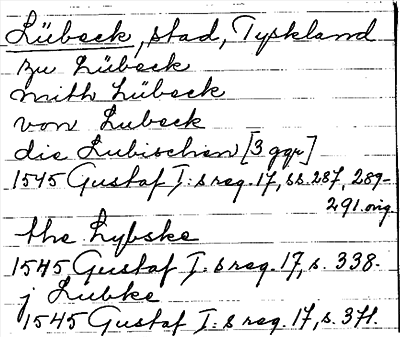 Lübeck, stad, Tyskland
zu Lübeck
mith Lübeck
von Lubeck
die Lubischen [3 ggr]
1545 Gustaf I:s reg. 17, ss. 287, 289-
291. orig.
the Lybske
1545 Gustaf I:s reg. 17, s. 338.
j Lubke
1545 Gustaf I:s reg. 17, s. 371.